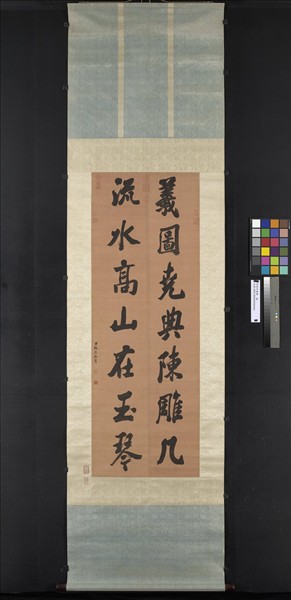 羲圖堯典陳雕几
流水高山在玉琴